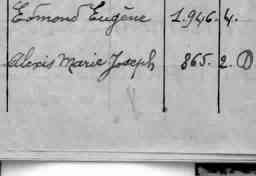 Edmond Eugène 1.946. 4.
Alexis Marie Joseph 865. 2. D